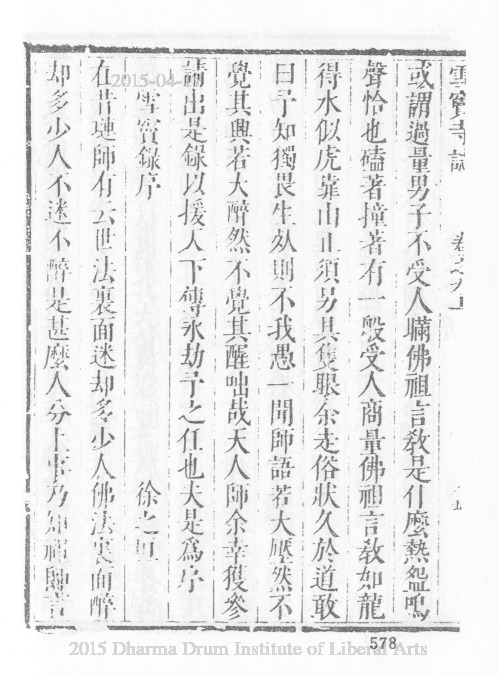 雪竇寺誌
或謂過量男子不受人瞞佛祖言教是什麼熱盌鳴
聲恰也磕著撞著有一般受人商量佛祖言教如龍
得水似虎靠山正須另具隻眼余走俗狀久於道敢
曰予知獨畏生死則不我愚一聞師語若大壓然不
覺其興若大醉然不覺其醒咄哉天人師余幸獲參
請出是錄以援人下傳永劫予之任也夫是為序
雪竇錄序 徐之垣
在昔璉師有云世法裏面迷却多少人佛法裏面醉
却多少人不迷不醉是甚麼人分上事乃知禪師言
578
2015-04-
2015 Dharma Drum Institute of Liberal Arts